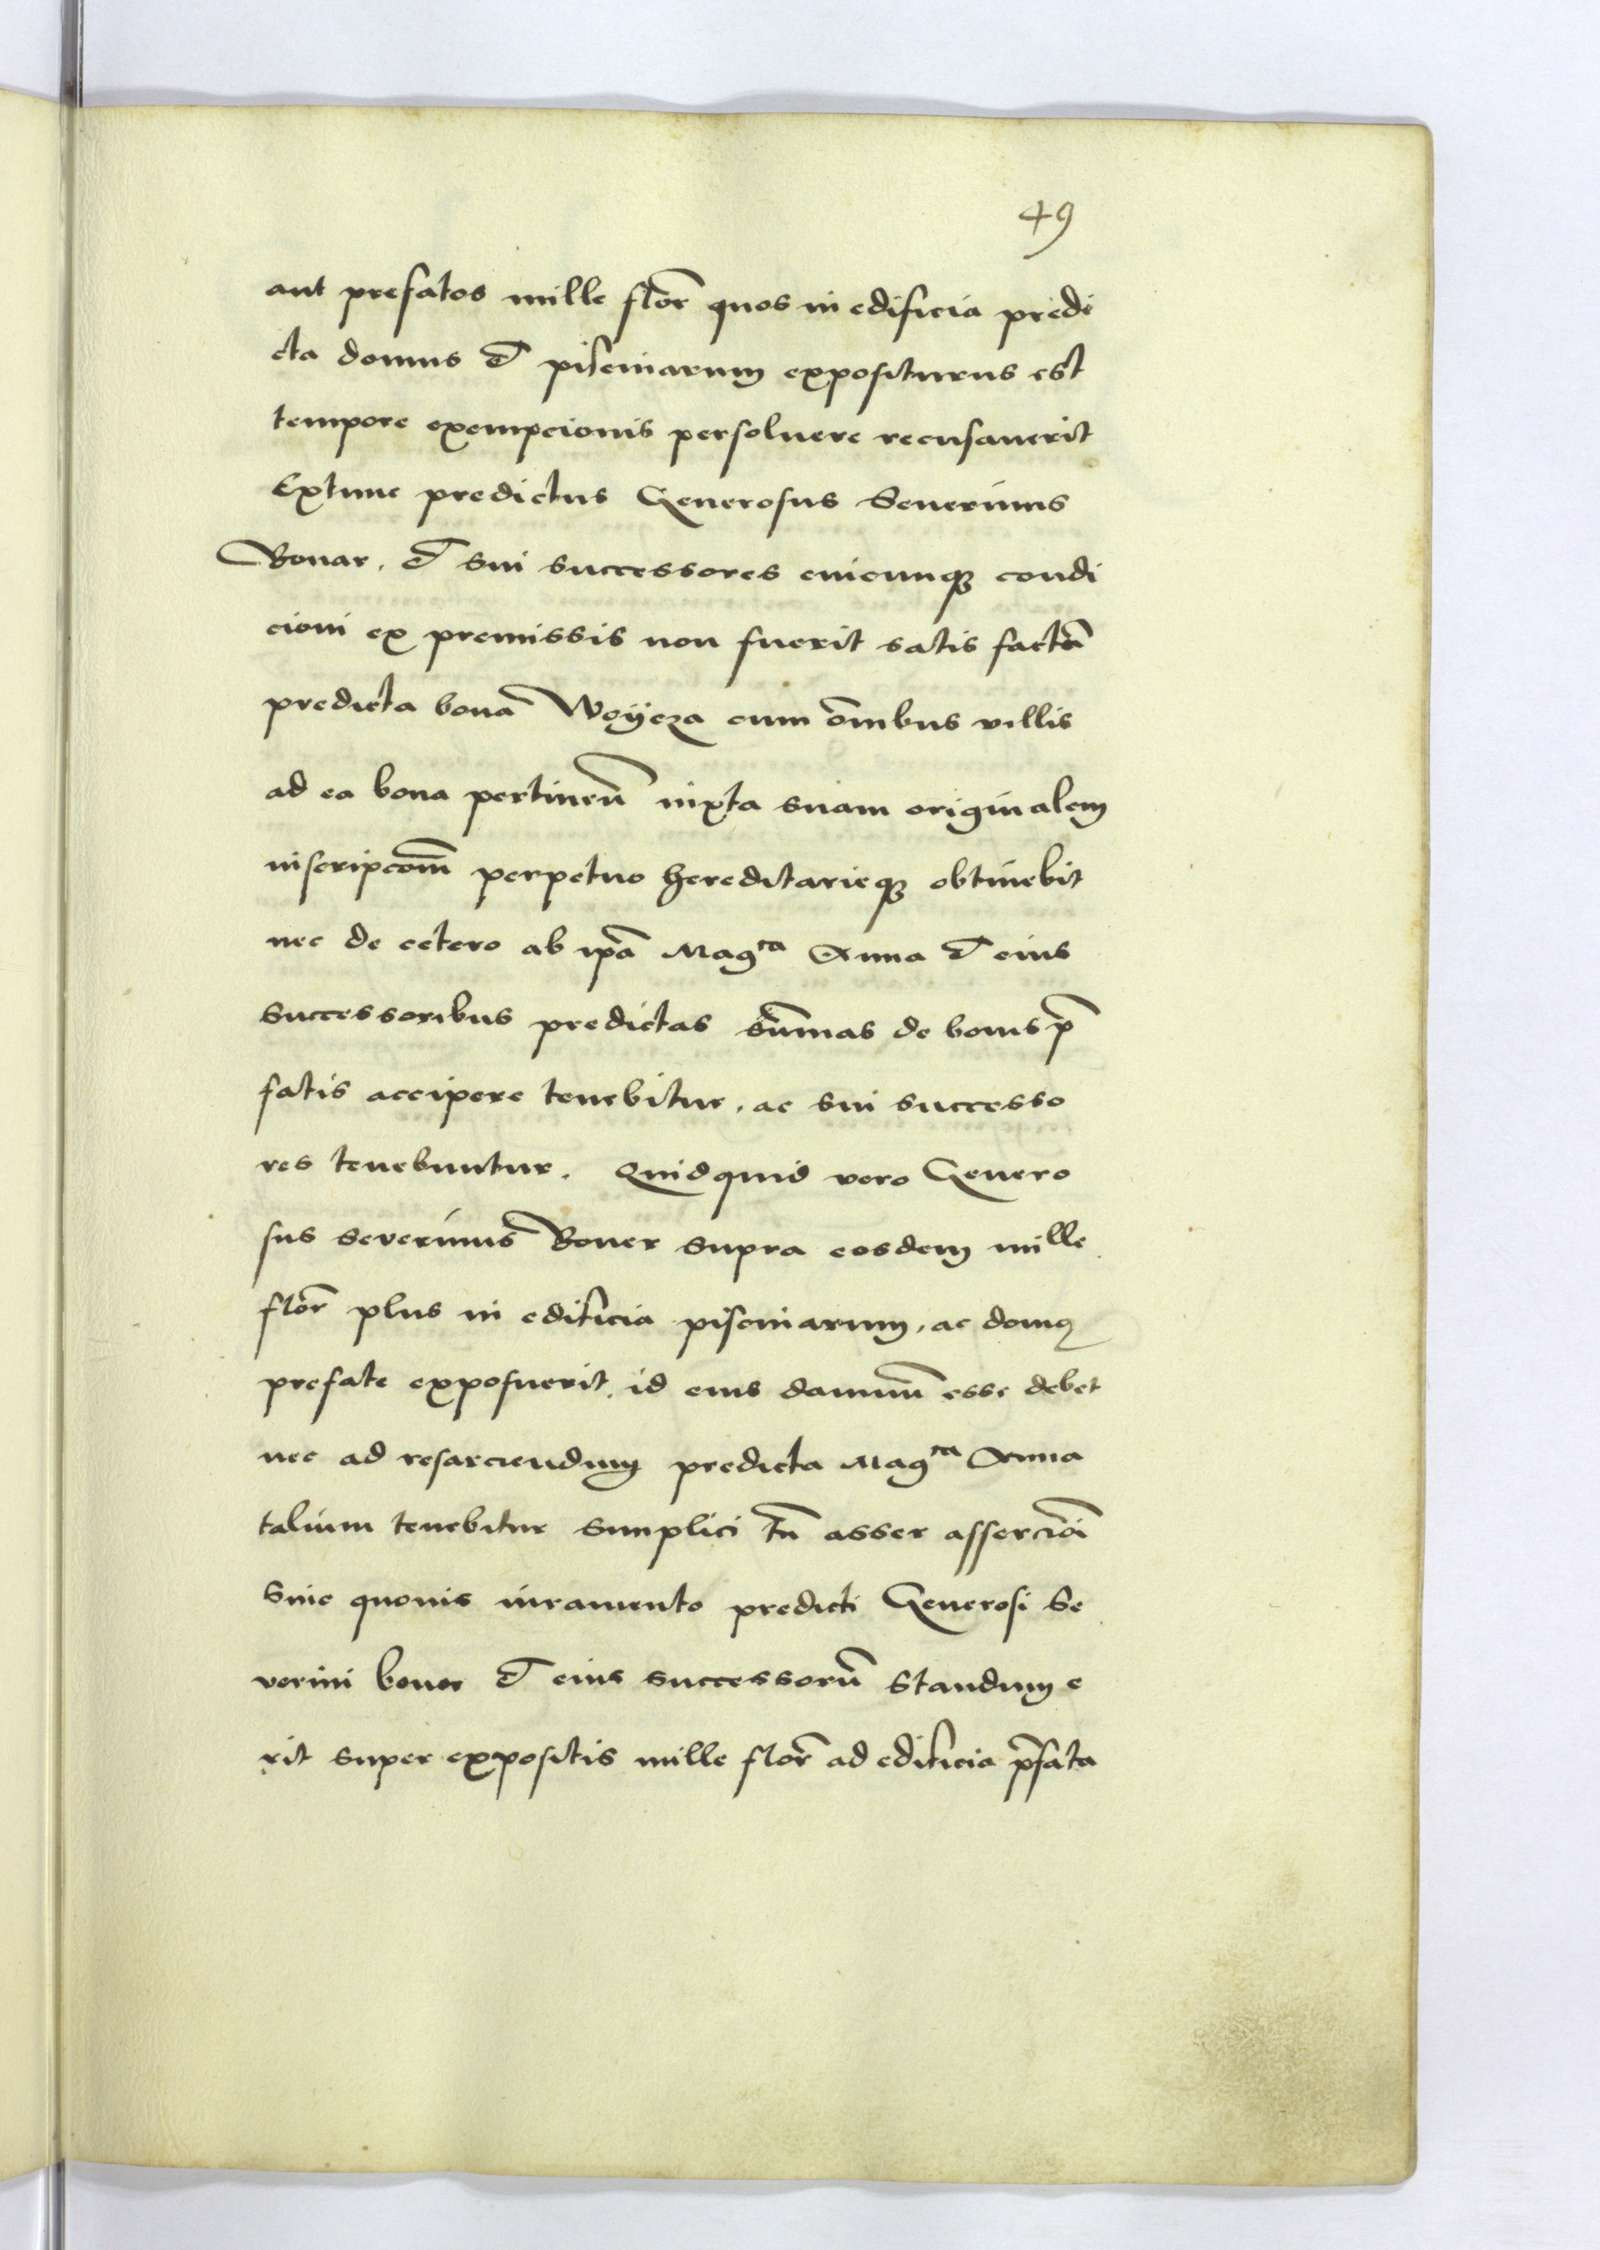 49
aut prefatos mille flor̄ quos in edificia predi
cta domus et pisciniarum expositurus est
tempore exempcionis persoluere recusauerit
Extunc predictus Generosus Seuerinus
Bonar, et sui successores cuicunqȝ condi
cioni ex premissis non fuerit satis factū
predicta bona Woycza cum om̄ibus villis
ad ea bona pertineñ iuxta suam originalem
inscripcom̄ perpetuo hereditarieqȝ obtinebit
nec de cetero ab ip̄a Magca Anna et eius
successoribus predictas sūmas de bonis p̄
fatis accipere tenebitur, ac sui successo
res tenebuntur. Quidquid vero Genero
sus Severinus Boner supra eosdem mille
flor̄ plus in edificia pisciniarum, ac domus
prefate exposuerit, id eius damnū esse debet
nec ad resarciendum predicta Magca Anna
talium tenebitur simplici tn̄ asser assercio͞i
sine quouis iuramento predicti Generosi Se
verini boner et eius successorū standum e
rit super expositis mille flor̄ ad edificia p̄fata